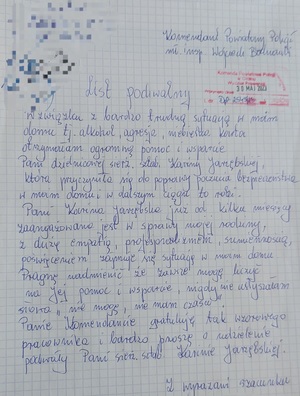 Komendant Powiatowy Policji
mł. insp. Wojciech
MAJ
List pochwalny
W związku z bardzo trudną sytuacją w moim
domu tj. alkohol, agresja, niebieska karta
otrzymałam ogromną pomoc i wsparcie
Pani dzielnicowej sierż. sztab. Kariny Jarzębskiej,
która przyczyniła się do poprawy poczucia bezpieczeństwa
w moim domu i w dalszym ciągu to robi.
Pani Karina Jarzębska już od kilku miesięcy
zaangażowana jest w sprawy mojej rodziny,
z dużą empatią, profesjonalizmem, sumiennością,
poświęceniem zajmuje się sytuacją w moim domu
Pragnę nadmienić że zawsze mogę liczyć
na Jej pomoc i wsparcie, nigdy nie usłyszałam
słowa „nie mogę, nie mam czasu".
Panie Komendancie gratuluję tak wzorowego
pracownika i bardzo proszę o udzielenie
pochwały Pani sierż. sztab. Karinie Jarzębskiej.
Z wyrazami szacunku